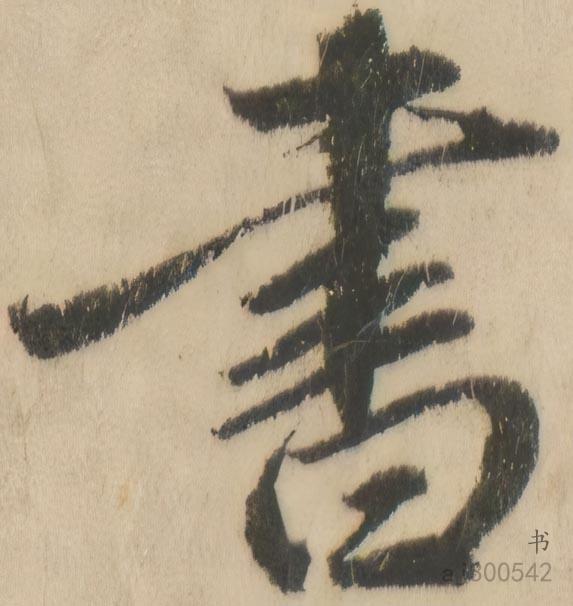 書
书
a J300542